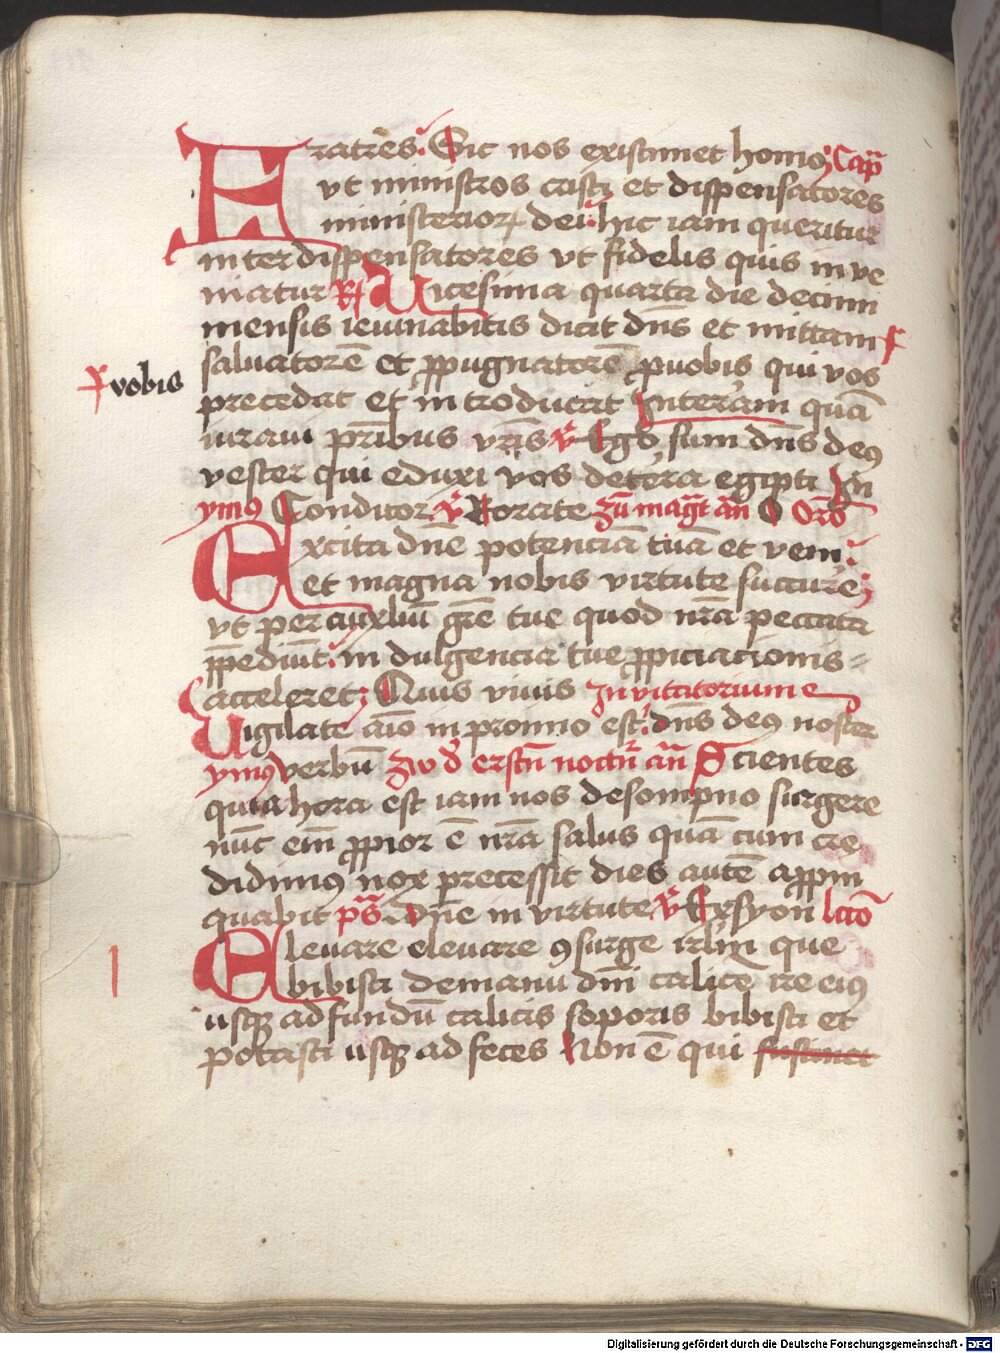 Fratres Sic nos existimet homo Capᷓ
vt ministros cristi et dispensatores
ministerioꝝ dei hic iam queritur
inter dispensatores vt fidelis quis inve
niatur Rᷣ Uicesima quarta die decimi
mensis ieiunabitis dicit dn̄s et mittam
vobis
saluatorē et ꝓpugnatorē ꝓ vobis qui vos
precedat et introducat In terram quā
iuraui pr̄ibus vr̄is v̉ Ego sum dn̄s deꝰ
vester qui eduxi vos de terra egipti In
ymꝰ Conditor v̉ Rorate zū mag̅t an̄ O Or̄o
Excita dn̄e potenciā tuā et veni
et magna nobis virtute succurre
vt per auxliū gr̄e tue quod nr̄a peccata
p̄pediūt in dulgencia tue ꝓpiciacionis
acceleret Quis viuis Invitatorium e
Uigilate aīo in proximo est dn̄s deꝰ noster
ymꝰ verbū zw d̉ erstn̄ noctn̉ an̄ Scientes
quia hora est iam nos de sompno surgere
nūc em̄ ꝓpior ē nr̄a salus quā cum cre
didimꝰ nox precessit dies autē appin
quabit ps̄ Dn̄e in virtute v̉ Ex syon lc̄cō
Eleuare eleuare ꝯsurge irlm̄ que
bibisti de manu dn̄i calicē ire eiꝰ
usqꝫ ad fundū calicis soporis bibisti et
potasti usqꝫ ad feces Non ē qui sustinet
Digitalisierung gefördert durch die Deutsche Forschungsgemeinschaft - DFG